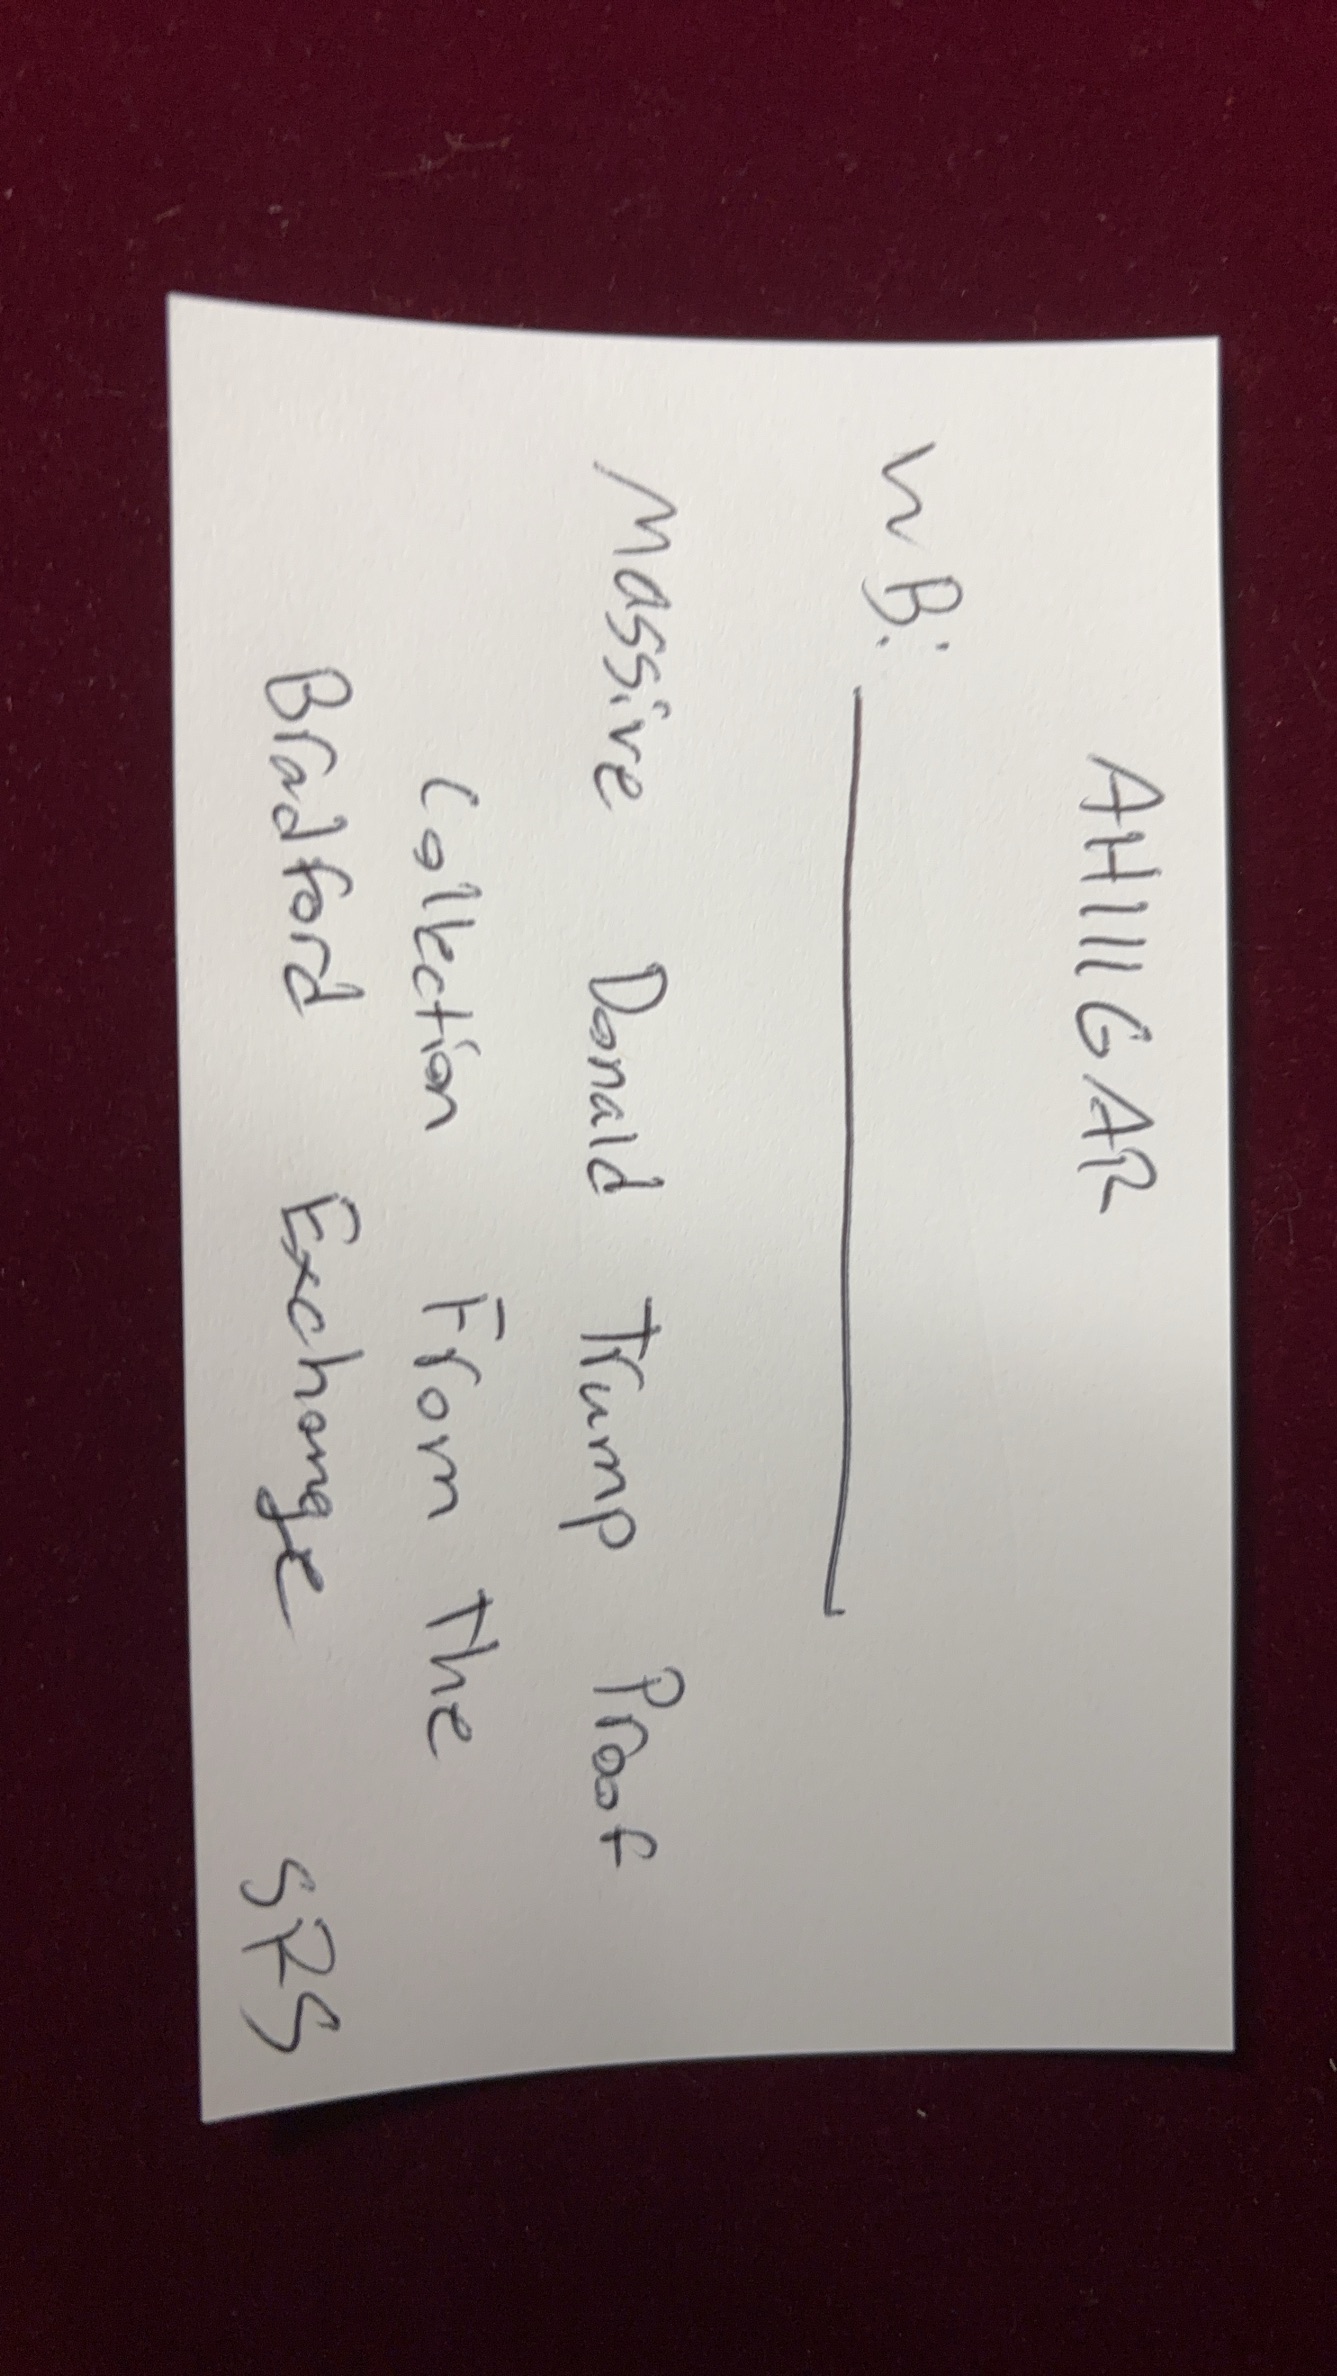 AH1116AR
WB:
Massive Donald Trump Proof
Collection From The
Bradford Exchange SRS